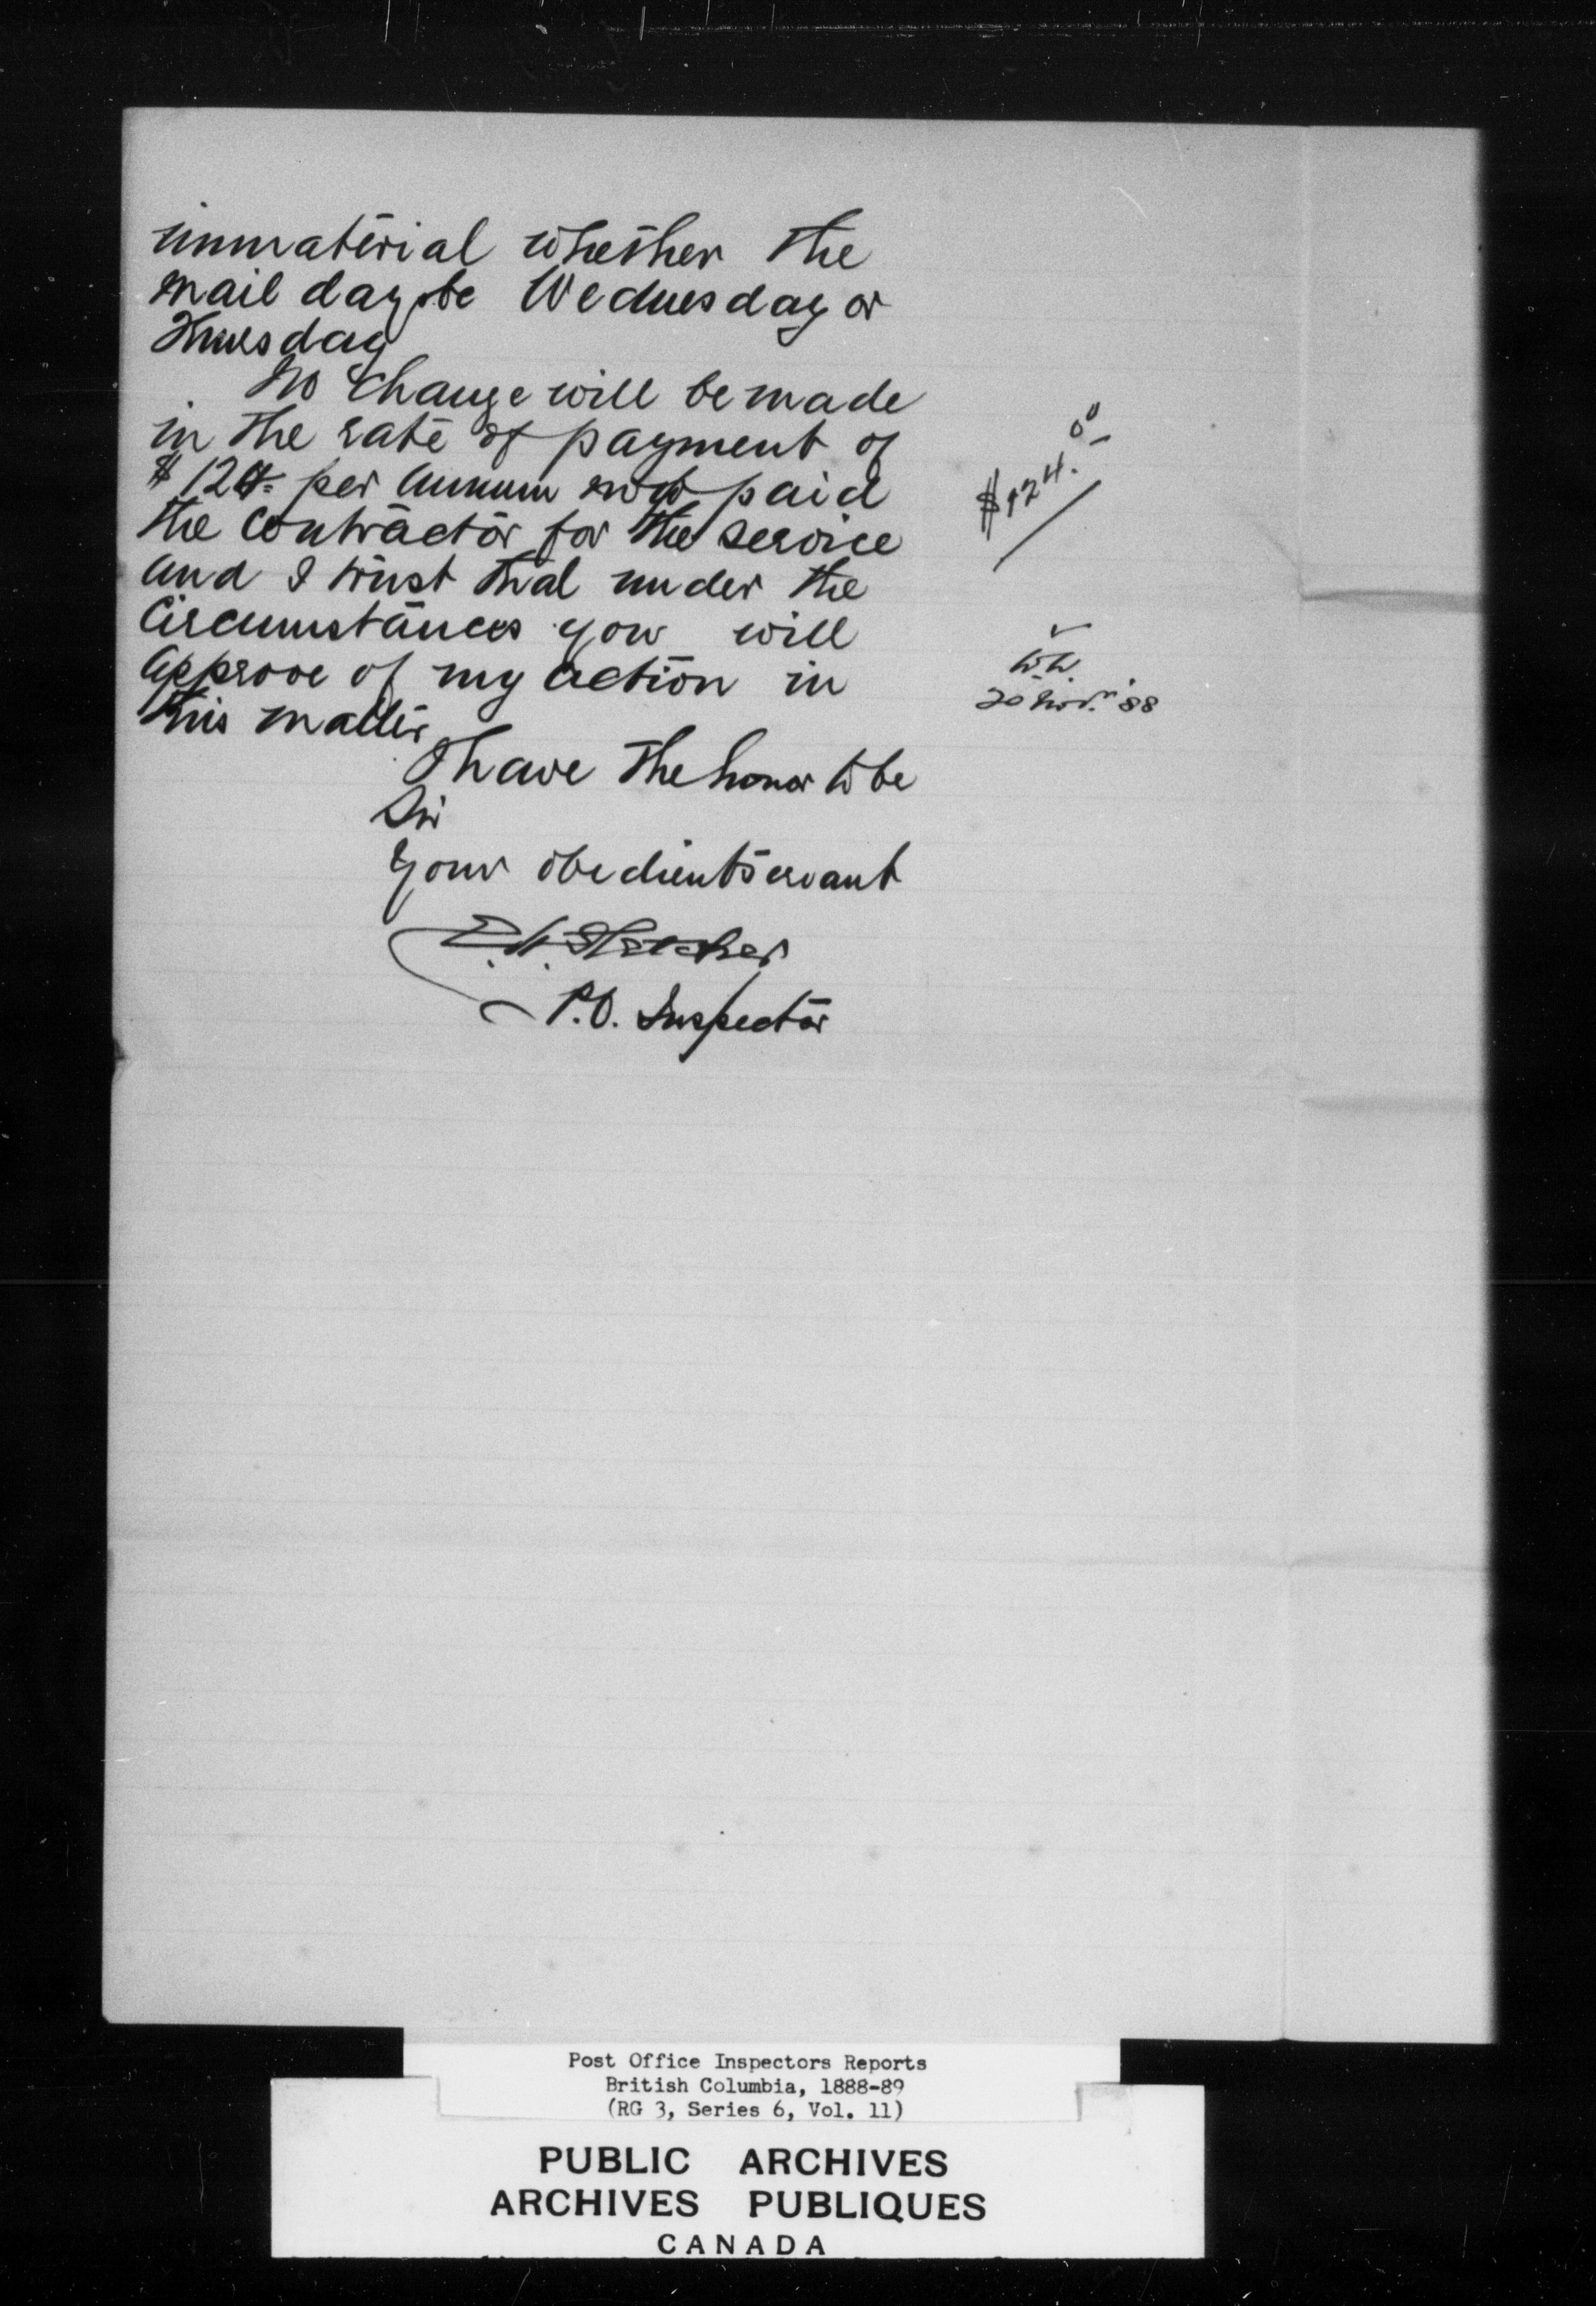 immaterial whether the
mail day be Wednesday or
Thursday
No change will be made
in the rate of payment of
$124= per annum now paid
the Contractor for the service
and I trust that under the
Circumstances you will
approve of my action in
this matter
I have the honor to be
Sir
Your obedient servant
E.H. Fletcher
P.O. Inspector
$124.00
W.H.
20 Nov. '88
Post Office Inspectors Reports
British Columbia, 1888-89
(RG 3, Series 6, Vol. 11)
PUBLIC ARCHIVES
ARCHIVES PUBLIQUES
CANADA